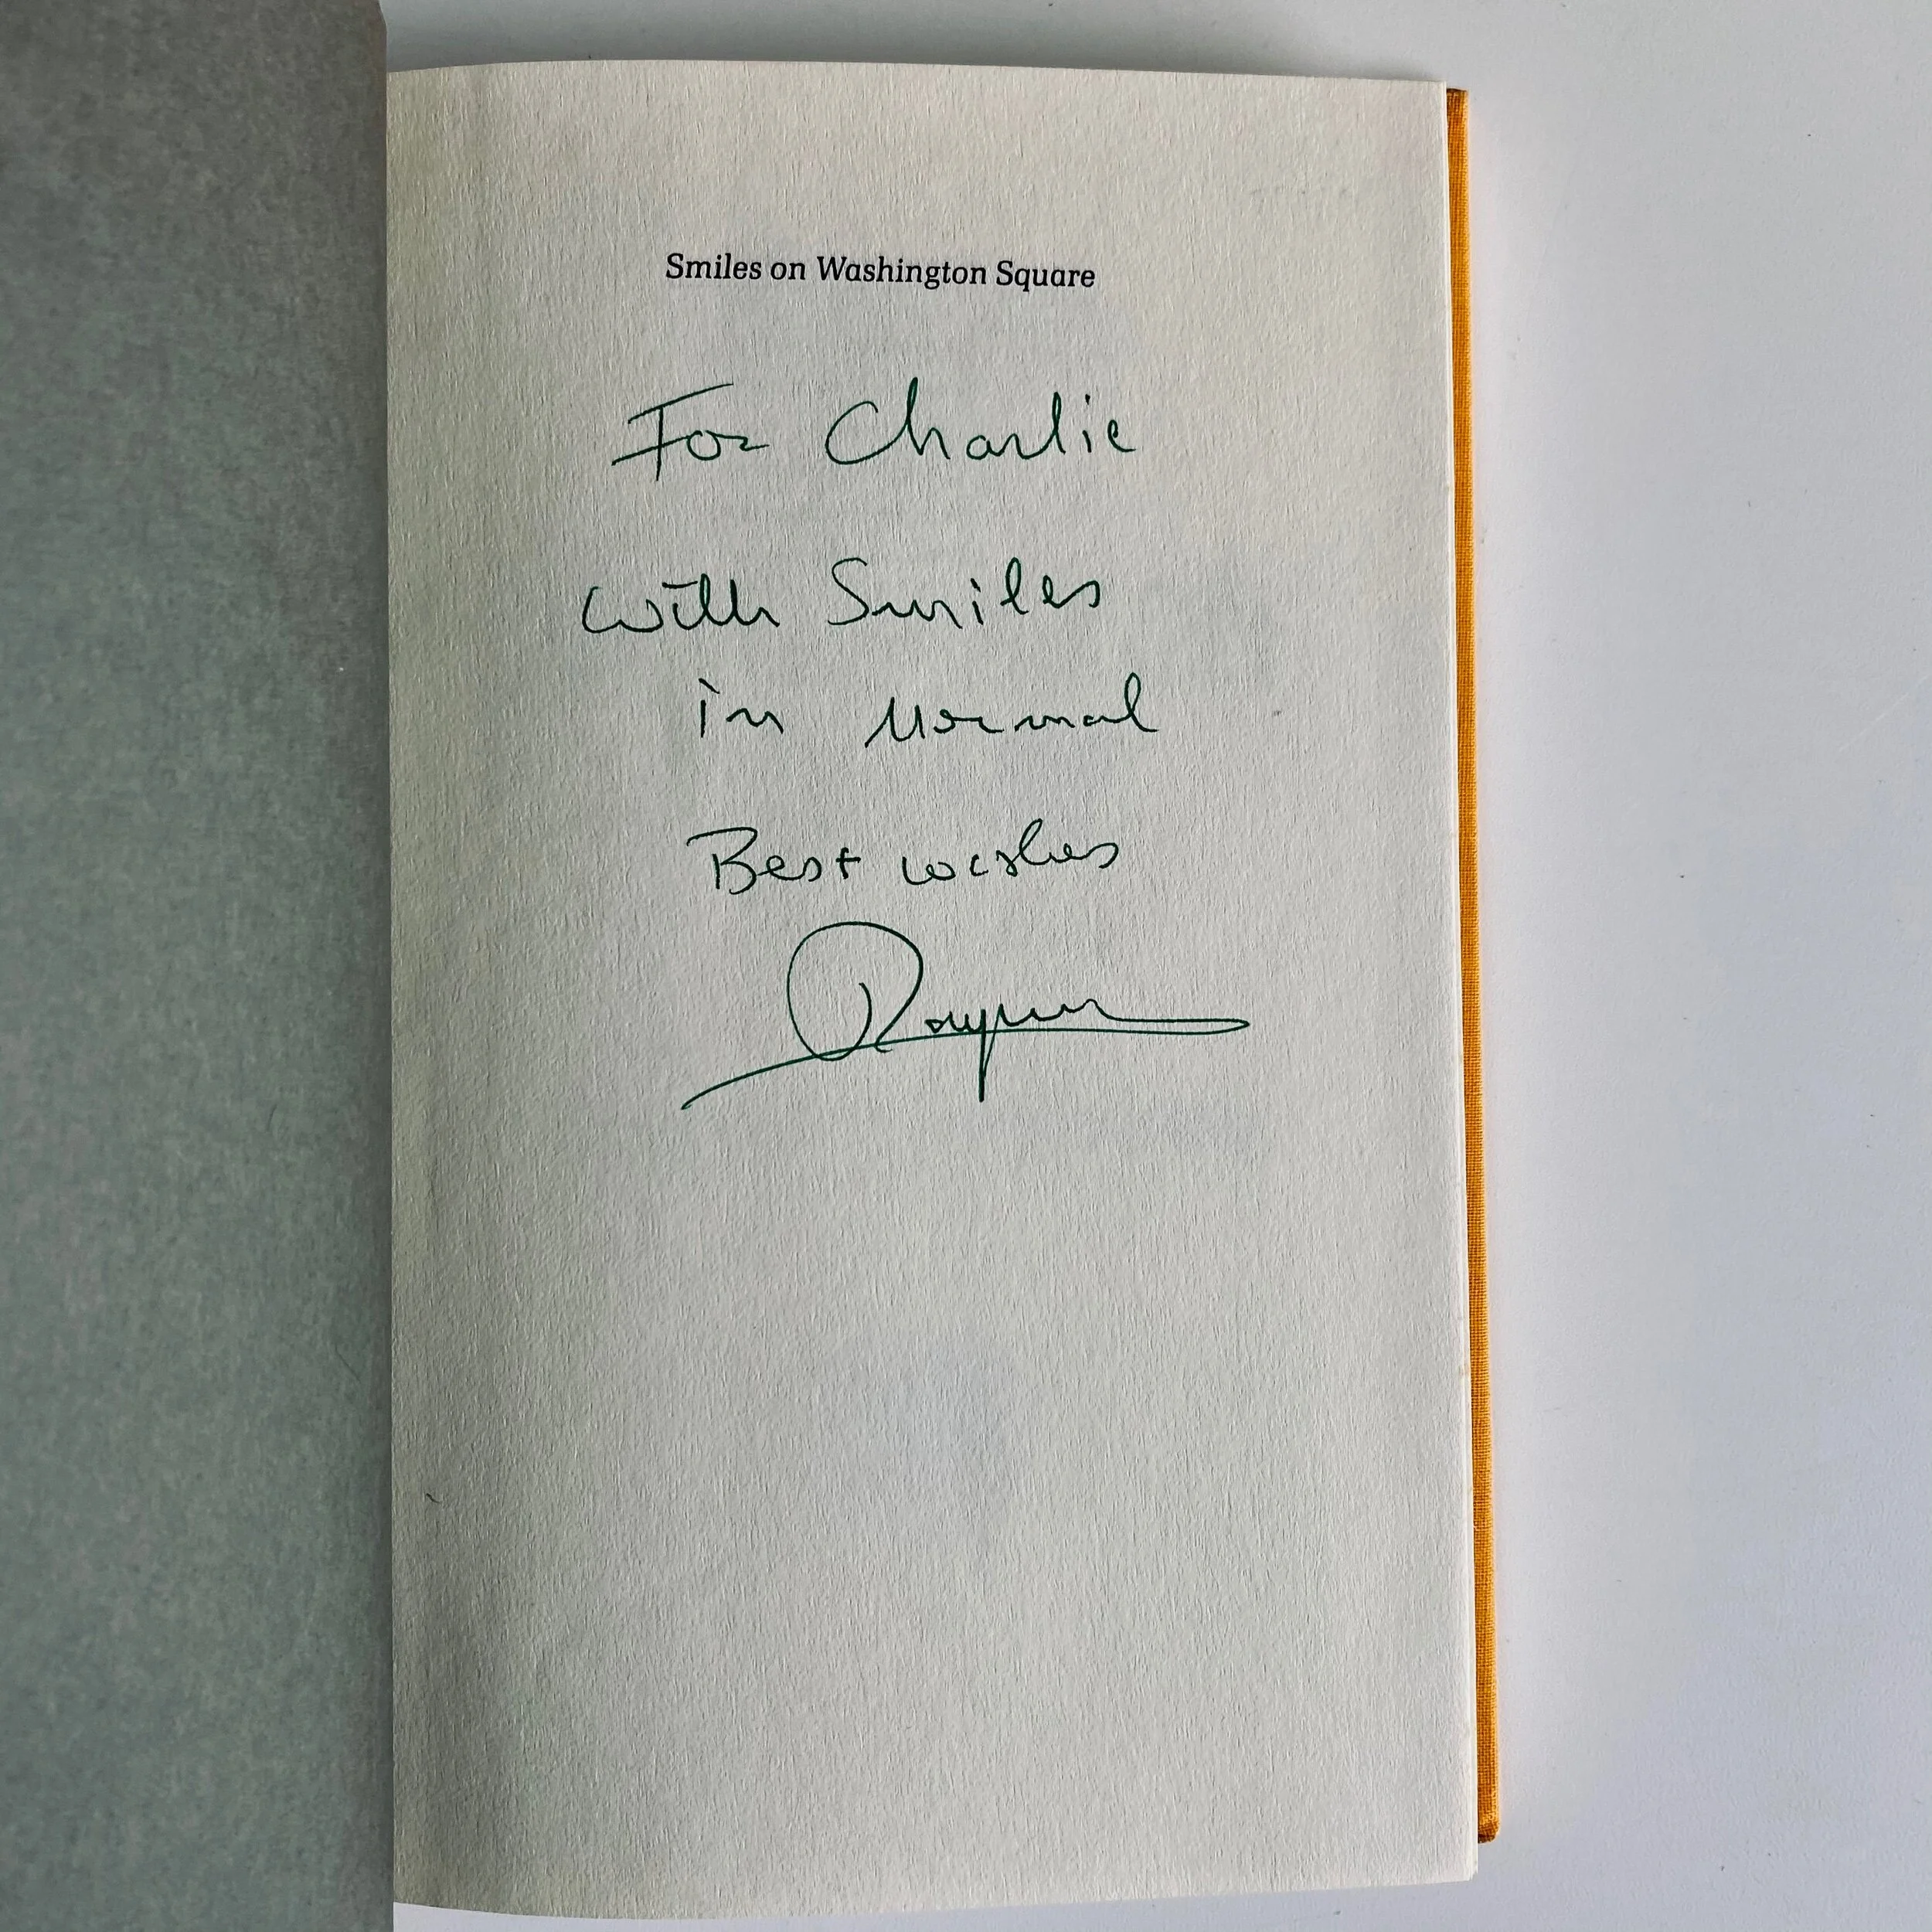 Smiles on Washington Square
For Charlie
with Smiles
in Normal
Best wishes